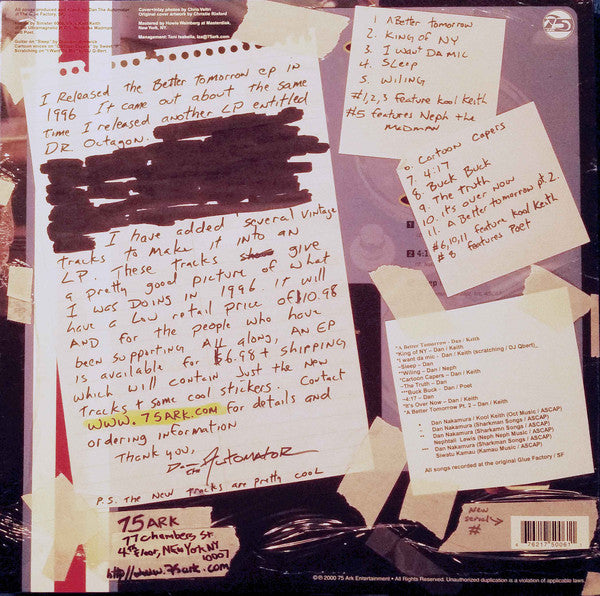 Management: Toni Isabella, iza@75ark.com
75
I Released the Better Tomorrow EP in
1996 It came out about the same
time I released another LP entitled
DR. Octagon.
I have added several vintage
tracks to make it into an
LP. These tracks give
a pretty good picture of what
I was Doing in 1996. it will
have a low retail price of $10.98
AND for the people who have
been supporting All along, AN EP
is available for $6.98 + shipping
which will contain Just the New
Tracks + some cool stickers. Contact
www.75ARK.com for details and
ordering information
Thank you,
Dan the Automator
P.S. The New Tracks are pretty cool
75 ARK
77 Chambers St
4th Floor, New York NY
10007
http://www.75ark.com
1 A Better tomorrow
2. King of NY
3. I want Da mic
4. Sleep
5. Wiling
#1,2,3 Feature Kool Keith
#5 features Neph the
madman
6. Cartoon Capers
7. 4:17
8. Buck Buck
9. The truth
10. it's over Now
11. A Better tomorrow pt. 2
#6,10,11 feature Kool Keith
# 8 features Poet
*A Better Tomorrow - Dan / Keith
*King of NY – Dan / Keith
*I want da mic - Dan / Keith (scratching / DJ Qbert)
-Sleep – Dan
**Wiling – Dan / Neph
*Cartoon Capers – Dan / Keith
-The Truth – Dan
***Buck Buck - Dan / Poet
-4:17 – Dan
*It's Over Now – Dan / Keith
*A Better Tomorrow Pt. 2 – Dan / Keith
* Dan Nakamura / Kool Keith (Oct Music / ASCAP)
- Dan Nakamura (Sharkman Songs / ASCAP)
** Dan Nakamura (Sharkman Songs / ASCAP)
Nephtali Lewis (Neph Neph Music / ASCAP)
*** Dan Nakamura (Sharkman Songs / ASCAP)
Siwatu Kamau (Kamau Music / ASCAP)
All songs recorded at the original Glue Factory / SF
New
serial
#
76217 50061
℗© 2000 75 Ark Entertainment • All Rights Reserved. Unauthorized duplication is a violation of applicable laws.